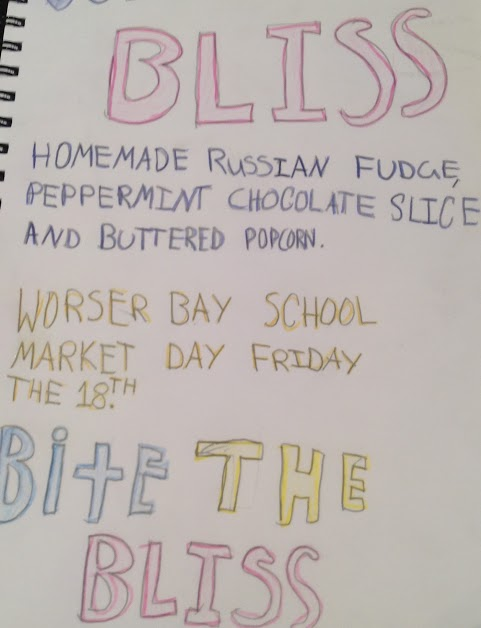 BLISS
HOMEMADE RUSSIAN FUDGE,
PEPPERMINT CHOCOLATE SLICE
AND BUTTERED POPCORN.
WORSER BAY SCHOOL
MARKET DAY FRIDAY
THE 18.TH
BiTE THE
BLISS